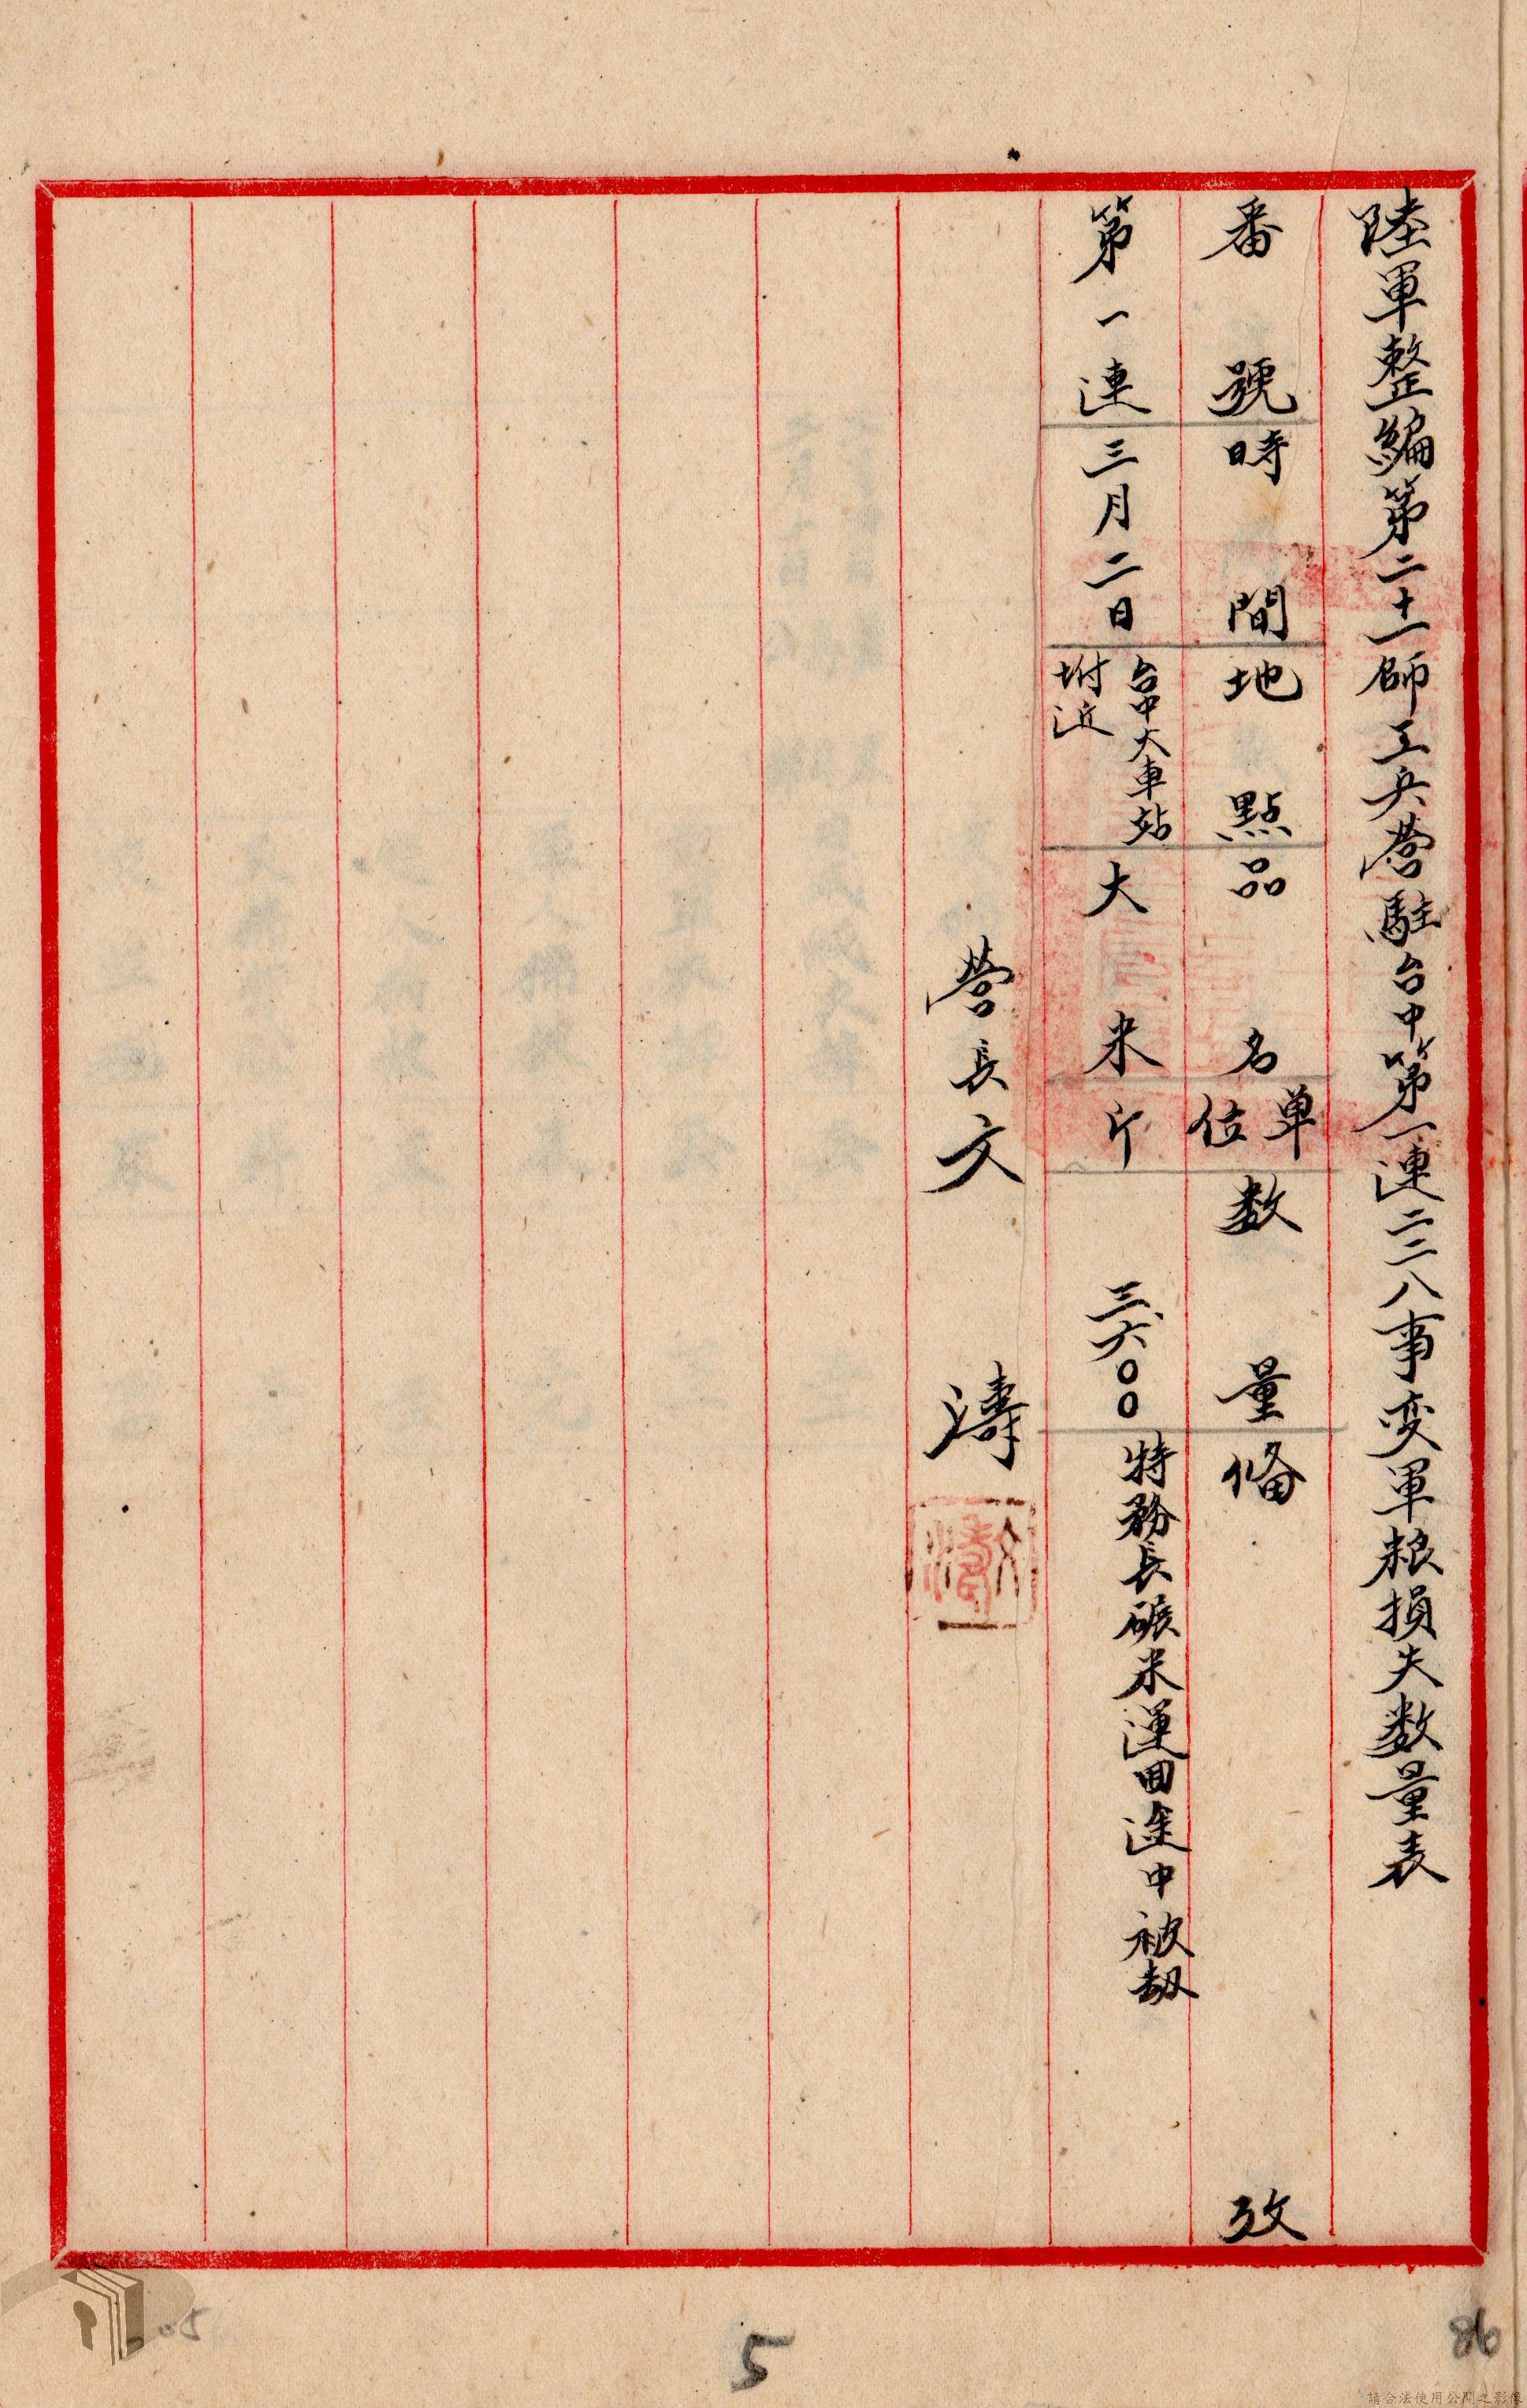 陸軍整編第二十一師工兵營駐台中第一連二二八事变軍粮損失数量表
番號 時間 地點 品名 单位 数量 備攷
第一連 三月二日 台中大車站附近 大米 斤 三、六〇〇 特務長碾米運回途中被刼
營長文濤
文濤
5
86
請合法使用公開之影像